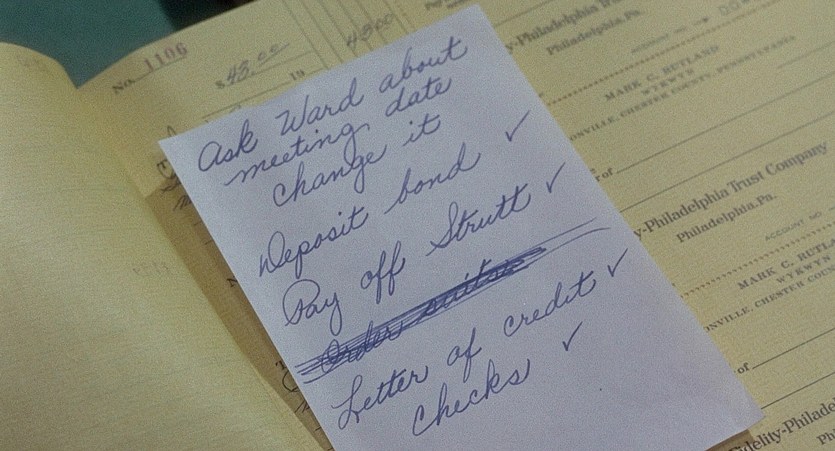 No. 1106
$43.00
19
4300
Ask Ward about
meeting date
change it
Deposit bond ✓
Pay off Strutt ✓
Order suits
Letter of credit ✓
checks ✓
y-Philadelphia Trust Company
Philadelphia, Pa.
ACCOUNT NO.
MARK C. RUTLAND
WYKWYN
ONVILLE, CHESTER COUNTY, PENNSYLVANIA
r of
y-Philadelphia Trust Company
Philadelphia, Pa.
ACCOUNT NO.
MARK C. RUTLA
WYKWYN
ONVILLE, CHESTER COUNT
of
Fidelity-Philadel
Phi